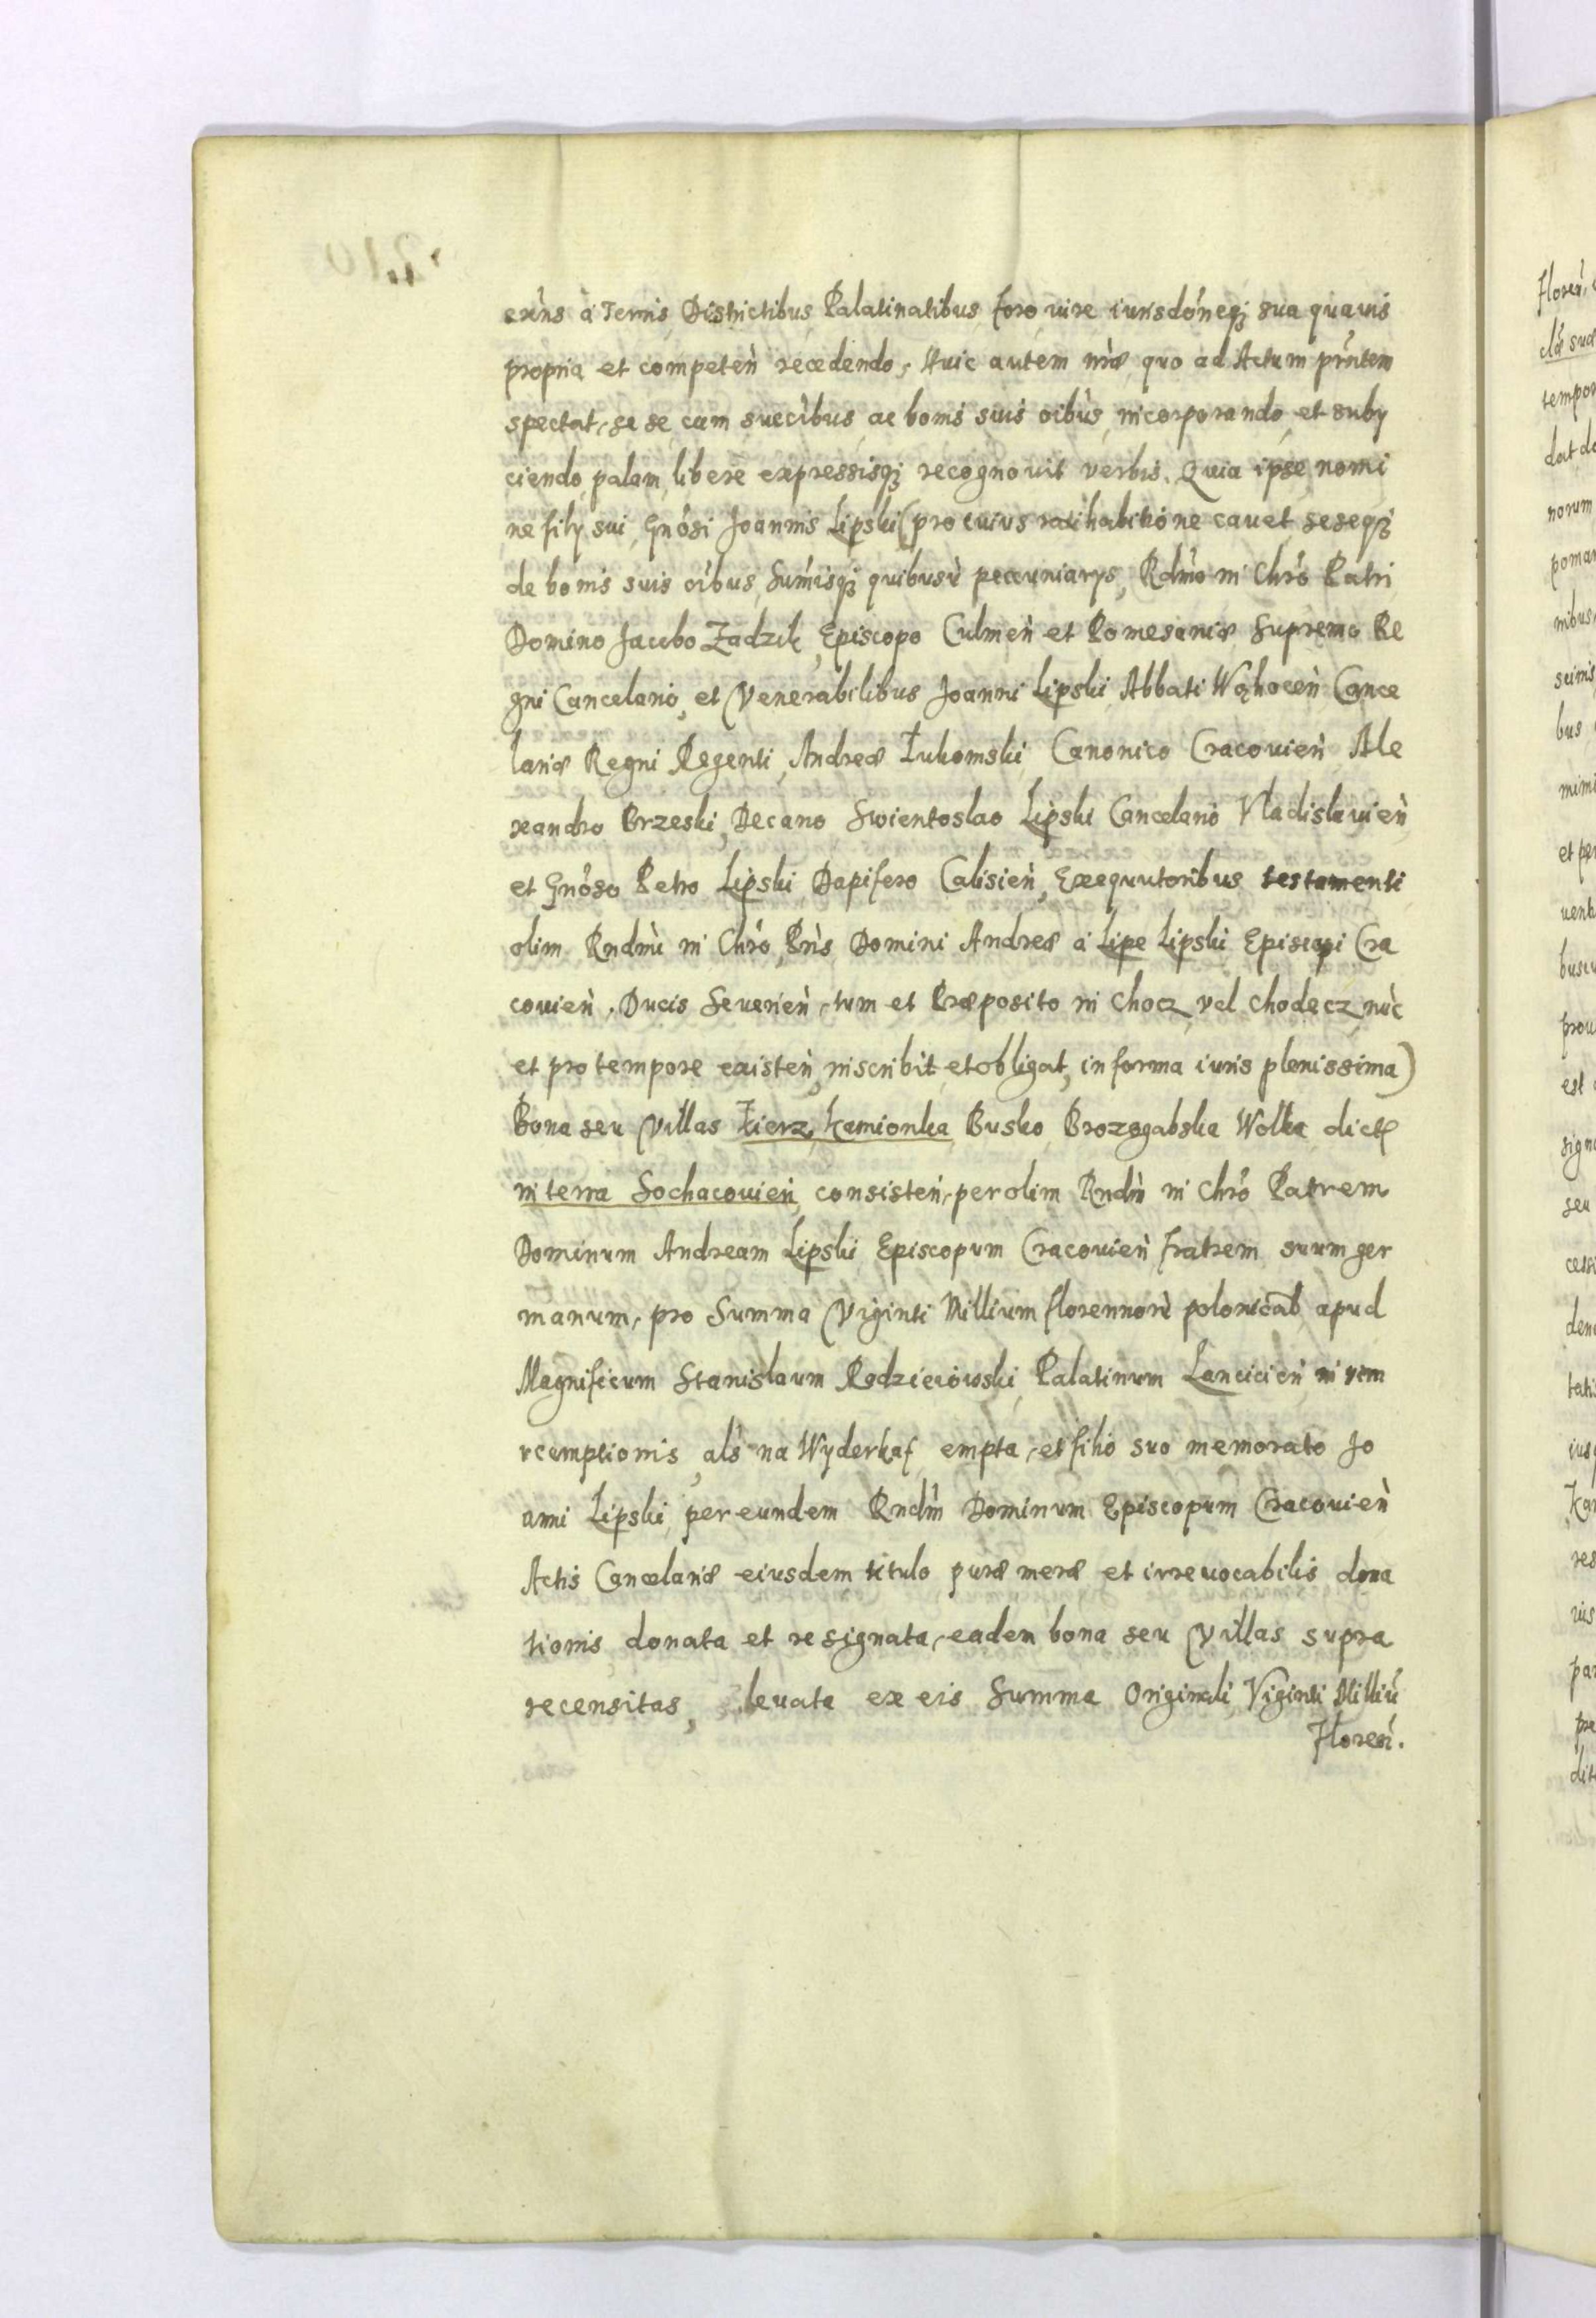 exńs à Terris Districtibus Palatinatibus foro iure iurisdóneq; sua quavis
propria et competeǹ recedendo, Huic autem nræ quo ad Actum pr̃ntem
spectat, se se cum succ̀ibus ac bonis suis oíbùs incorporando et suby
ciendo palam libere expressisq; recognovit verbis. Quia ipse nomi
ne fily sui Gnósi Joannis Lipski (pro cuius ratihabitióne cavet seseq;
de bonis suis oíbus, Sum̃isq; quibusù pecuniarys, Rdm̃o in Chrõ Patri
Domino Jacobo Zadzik, Episcopo Culmeǹ et Pomesaniæ Supremo Re
gni Cancelario, et Venerabilibus Joanni Lipski Abbati Wąhoceǹ Cance
lariæ Regni Regenti, Andreæ Łukomski Canonico Cracovieǹ Ale
xandro Brzeski, Decano Swientoslao Lipski Cancelario Vladislavieǹ
et Gnóso Petro Lipski Dapifero Calisieǹ, Exequutoribus testamenti
olim Rndm̀i in Chrõ Pr̀is Domini Andreæ à Lipe Lipski Episcopi Cra
covieǹ. Ducis Severieǹ, tum et Præposito in Chocz vel Chodecz nùc
et pro tempore existeǹ, inscribit et obligat, in forma iuris plenissima)
Bona seu Villas Łierz, Kamionka Busko Brozogabska Wolka dict
in terra Sochacovieǹ consisteǹ, per olim Rndm̀ in Chrõ Patrem
Dominum Andream Lipski Episcopum Cracovieǹ fratrem suum ger
manum, pro Summa Viginti Millium florennorù polonicab apud
Magnificum Stanislaum Radzieiowski Palatinum Lancicieǹ in vim
reemptionis als na Wyderkaf empta, et filio suo memorato Jo
anni Lipski per eundem Rndm̀ Dominum Episcopum Cracovieǹ
Actis Cancelariæ eiusdem titulo puræ meræ et irrevocabilis dona
tionis donata et resignata, eadem bona seu Villas supra
recensitas, levata ex eis Summa Originali Viginti Milliũ
Floreǹ.